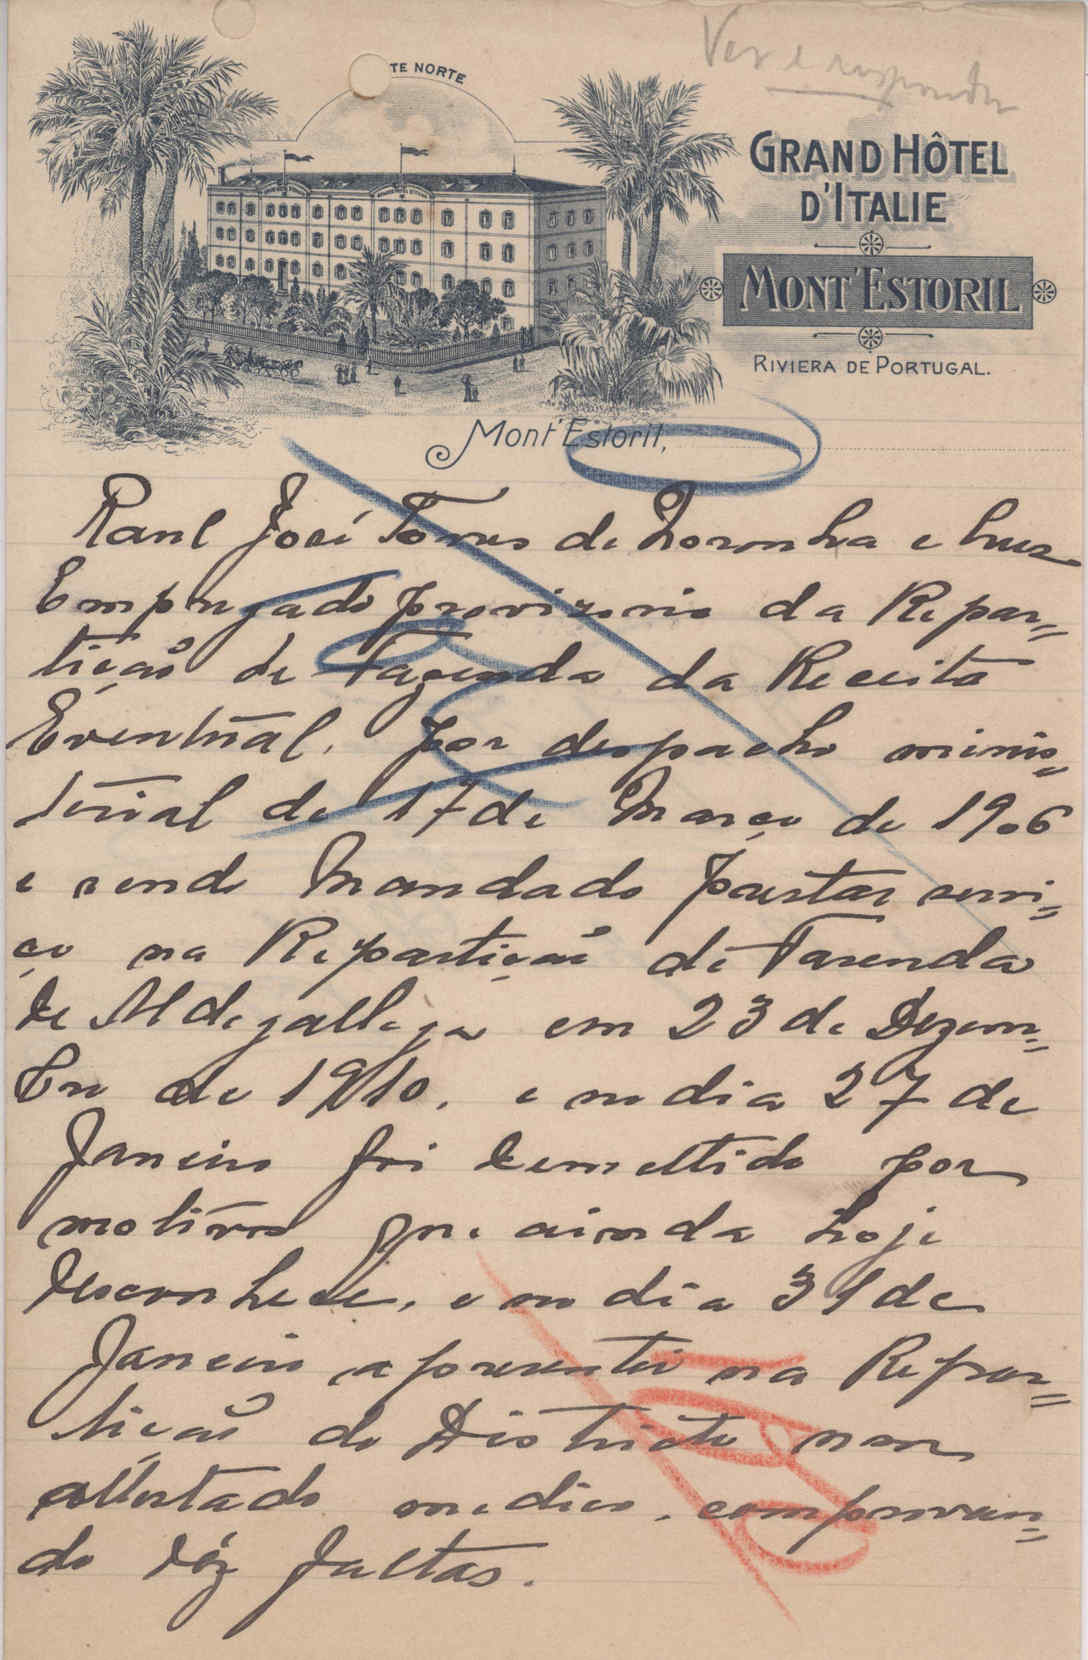 Ver e responder
TE NORTE
GRAND HÔTEL
D'ITALIE
MONT'ESTORIL
RIVIERA DE PORTUGAL.
Mont'Estoril,
Raul José Torres de Noronha e Luz
Empregado provizorio da Repar=
tição de Fazenda da Receita
Eventual, por despacho minis=
terial de 17 de Março de 1906
e sendo Mandado prestar servi=
ço na Repartição de Fazenda
de Aldegallega em 23 de Dezem=
bro de 1910, e no dia 27 de
Janeiro foi demettido por
motivos que ainda hoje
desconhece, e no dia 31 de
Janeiro apresentei na Repar=
tição do Districto um
attestado medico, comprovan=
do déz faltas.